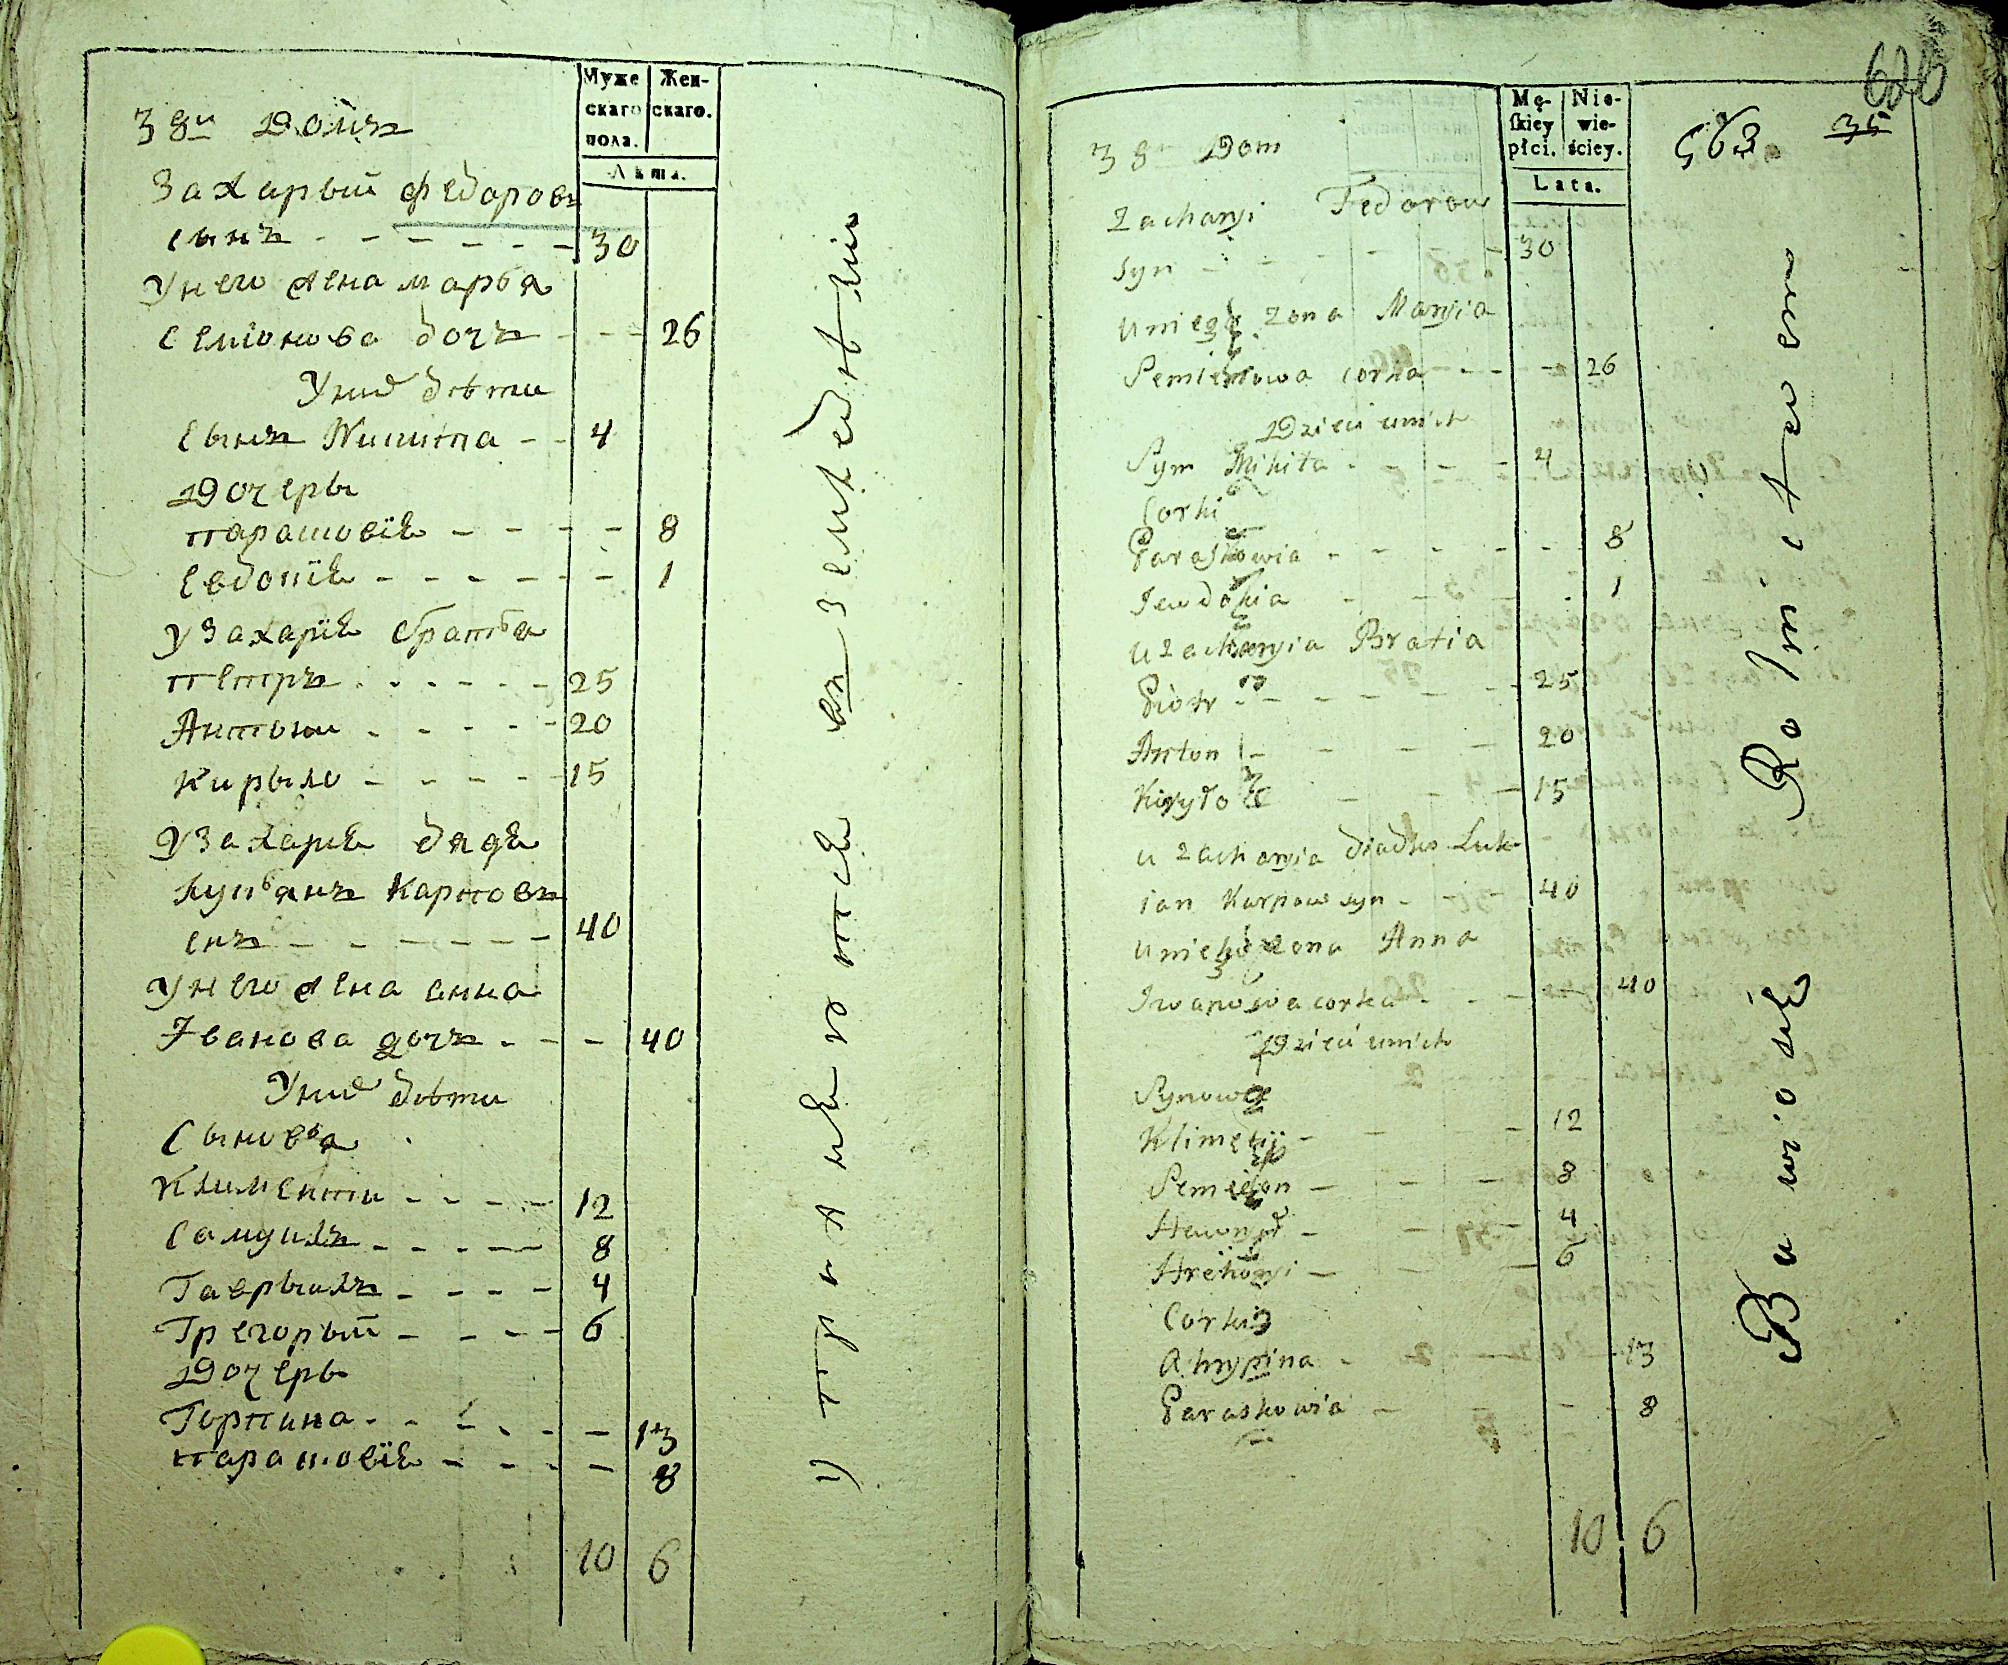 Муже
скаго
пола.
Жен-
скаго.
Лѣта.
3 8й Домъ
Захарый Федоровъ
сынъ - - - - - - 30
У него жена марья
Семіонова дочъ - - - 26
У них дѣти
Сынъ Микита - - 4
Дочеры
парасковія - - - - 8
Евдокія - - - - - - 1
У Захарія братья
петръ - - - - - - 25
Антони - - - - - 20
Кирыло - - - - - 15
У Захарія дядя
Лукьянъ Карповъ
снъ - - - - - - 40
У него жена анна
Іванова дочъ - - - 40
У них дѣти
Сыновья
Климентіи - - - - 12
Самуилъ - - - - - 8
Гаврыилъ - - - - 4
Грегорый - - - - 6
Дочеры
Горпина - - - - - 13
парасковія - - - - 8
10 6
упражняются въ земледѣліи
Mę-
ſkiey
płci.
Nie-
wie-
ściey.
Lata.
620
563.
35
3 8m Dom
Zacharyi Fedorow
syn - - - - - - 30
u niego zona Maryia
Semienowa corka - - - 26
Dzieci u nich
Syn Mikita - - - - 4
Corki
Paraskowia - - - - - - 8
Jewdokia - - - - 1
u Zacharyia Bratia
Piotr - - - - - 25
Anton - - - - 20
Kiryło - - - 15
u Zacharyia diadko Luk
ian Karpow syn - - - 40
u nieho zona Anna
Iwanowa corka - - - 40
Dzieci u nich
Synowe
Klimetij - - - - 12
Semion - - - - 8
Hawrył - - - 4
Hrehoryi - - - 6
Corki
Ahrypina - - - - 13
Paraskowia - - - - 8
10 6
Bawiąsię Rolnictwem